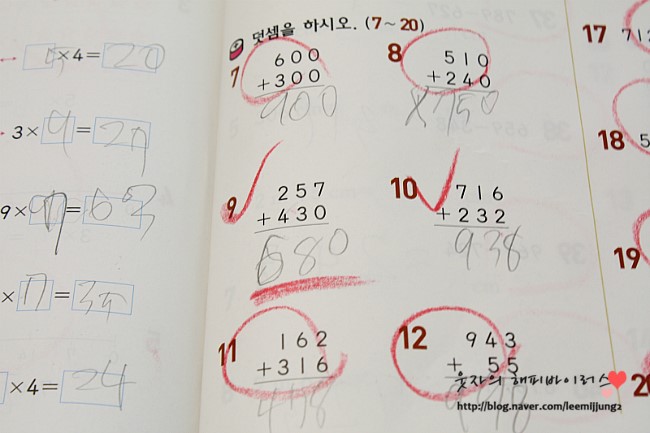 ×4=20
3×9=27
9×7=63
×7=35
×4=24
덧셈을 하시오. (7~20)
7
600
+300
900
8
510
+240
750
9
257
+430
680
10
716
+232
938
11
162
+316
478
12
943
+ 55
17
71
18
5
19
20
웃자의 해피바이러스
http://blog.naver.com/leemijjung2